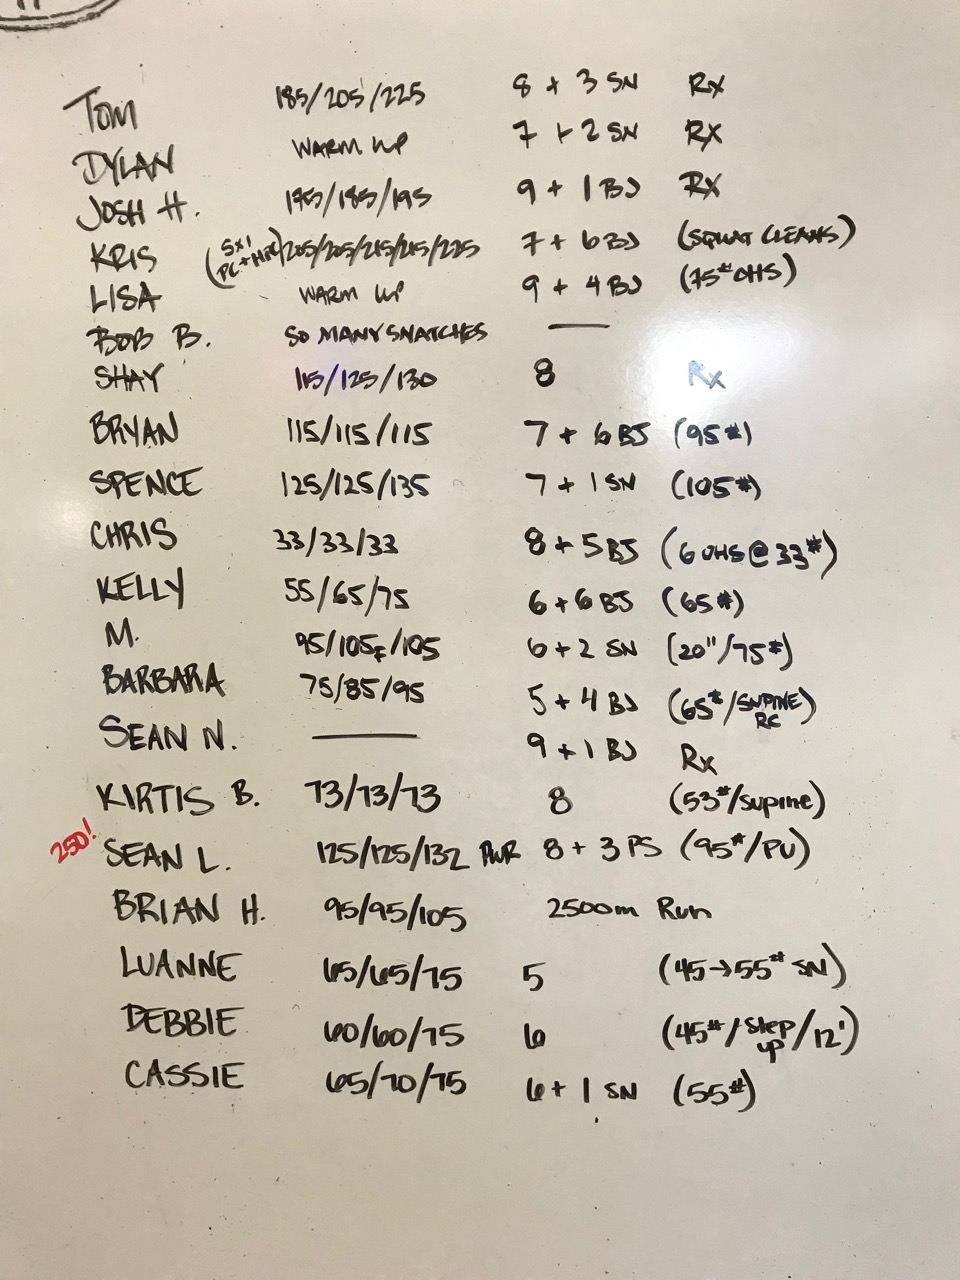 TOM 185/205/225 8 + 3 SN Rx
DYLAN WARM UP 7 + 2 SN Rx
JOSH H. 175/185/195 9 + 1 BJ Rx
KRIS (5x1 PC + HPC) 205/205/215/215/225 7 + 6 BJ (SQUAT CLEANS)
LISA WARM UP 9 + 4 BJ (75# OHS)
BOB B. SO MANY SNATCHES —
SHAY 115/125/130 8 Rx
BRYAN 115/115/115 7 + 6 BJ (95#)
SPENCE 125/125/135 7 + 1 SN (105#)
CHRIS 33/33/33 8 + 5 BJ (6 OHS @ 33#)
KELLY 55/65/75 6 + 6 BJ (65#)
M. 95/105F/105 6 + 2 SN (20"/75#)
BARBARA 75/85/95 5 + 4 BJ (65#/SUPINE RC)
SEAN N. — 9 + 1 BJ Rx
KIRTIS B. 73/73/73 8 (53#/supine)
250! SEAN L. 125/125/132 PWR 8 + 3 PS (95#/PU)
BRIAN H. 95/95/105 2500m Run
LUANNE 65/65/75 5 (45→55# SN)
DEBBIE 60/60/75 6 (45#/step up/12')
CASSIE 65/70/75 6 + 1 SN (55#)